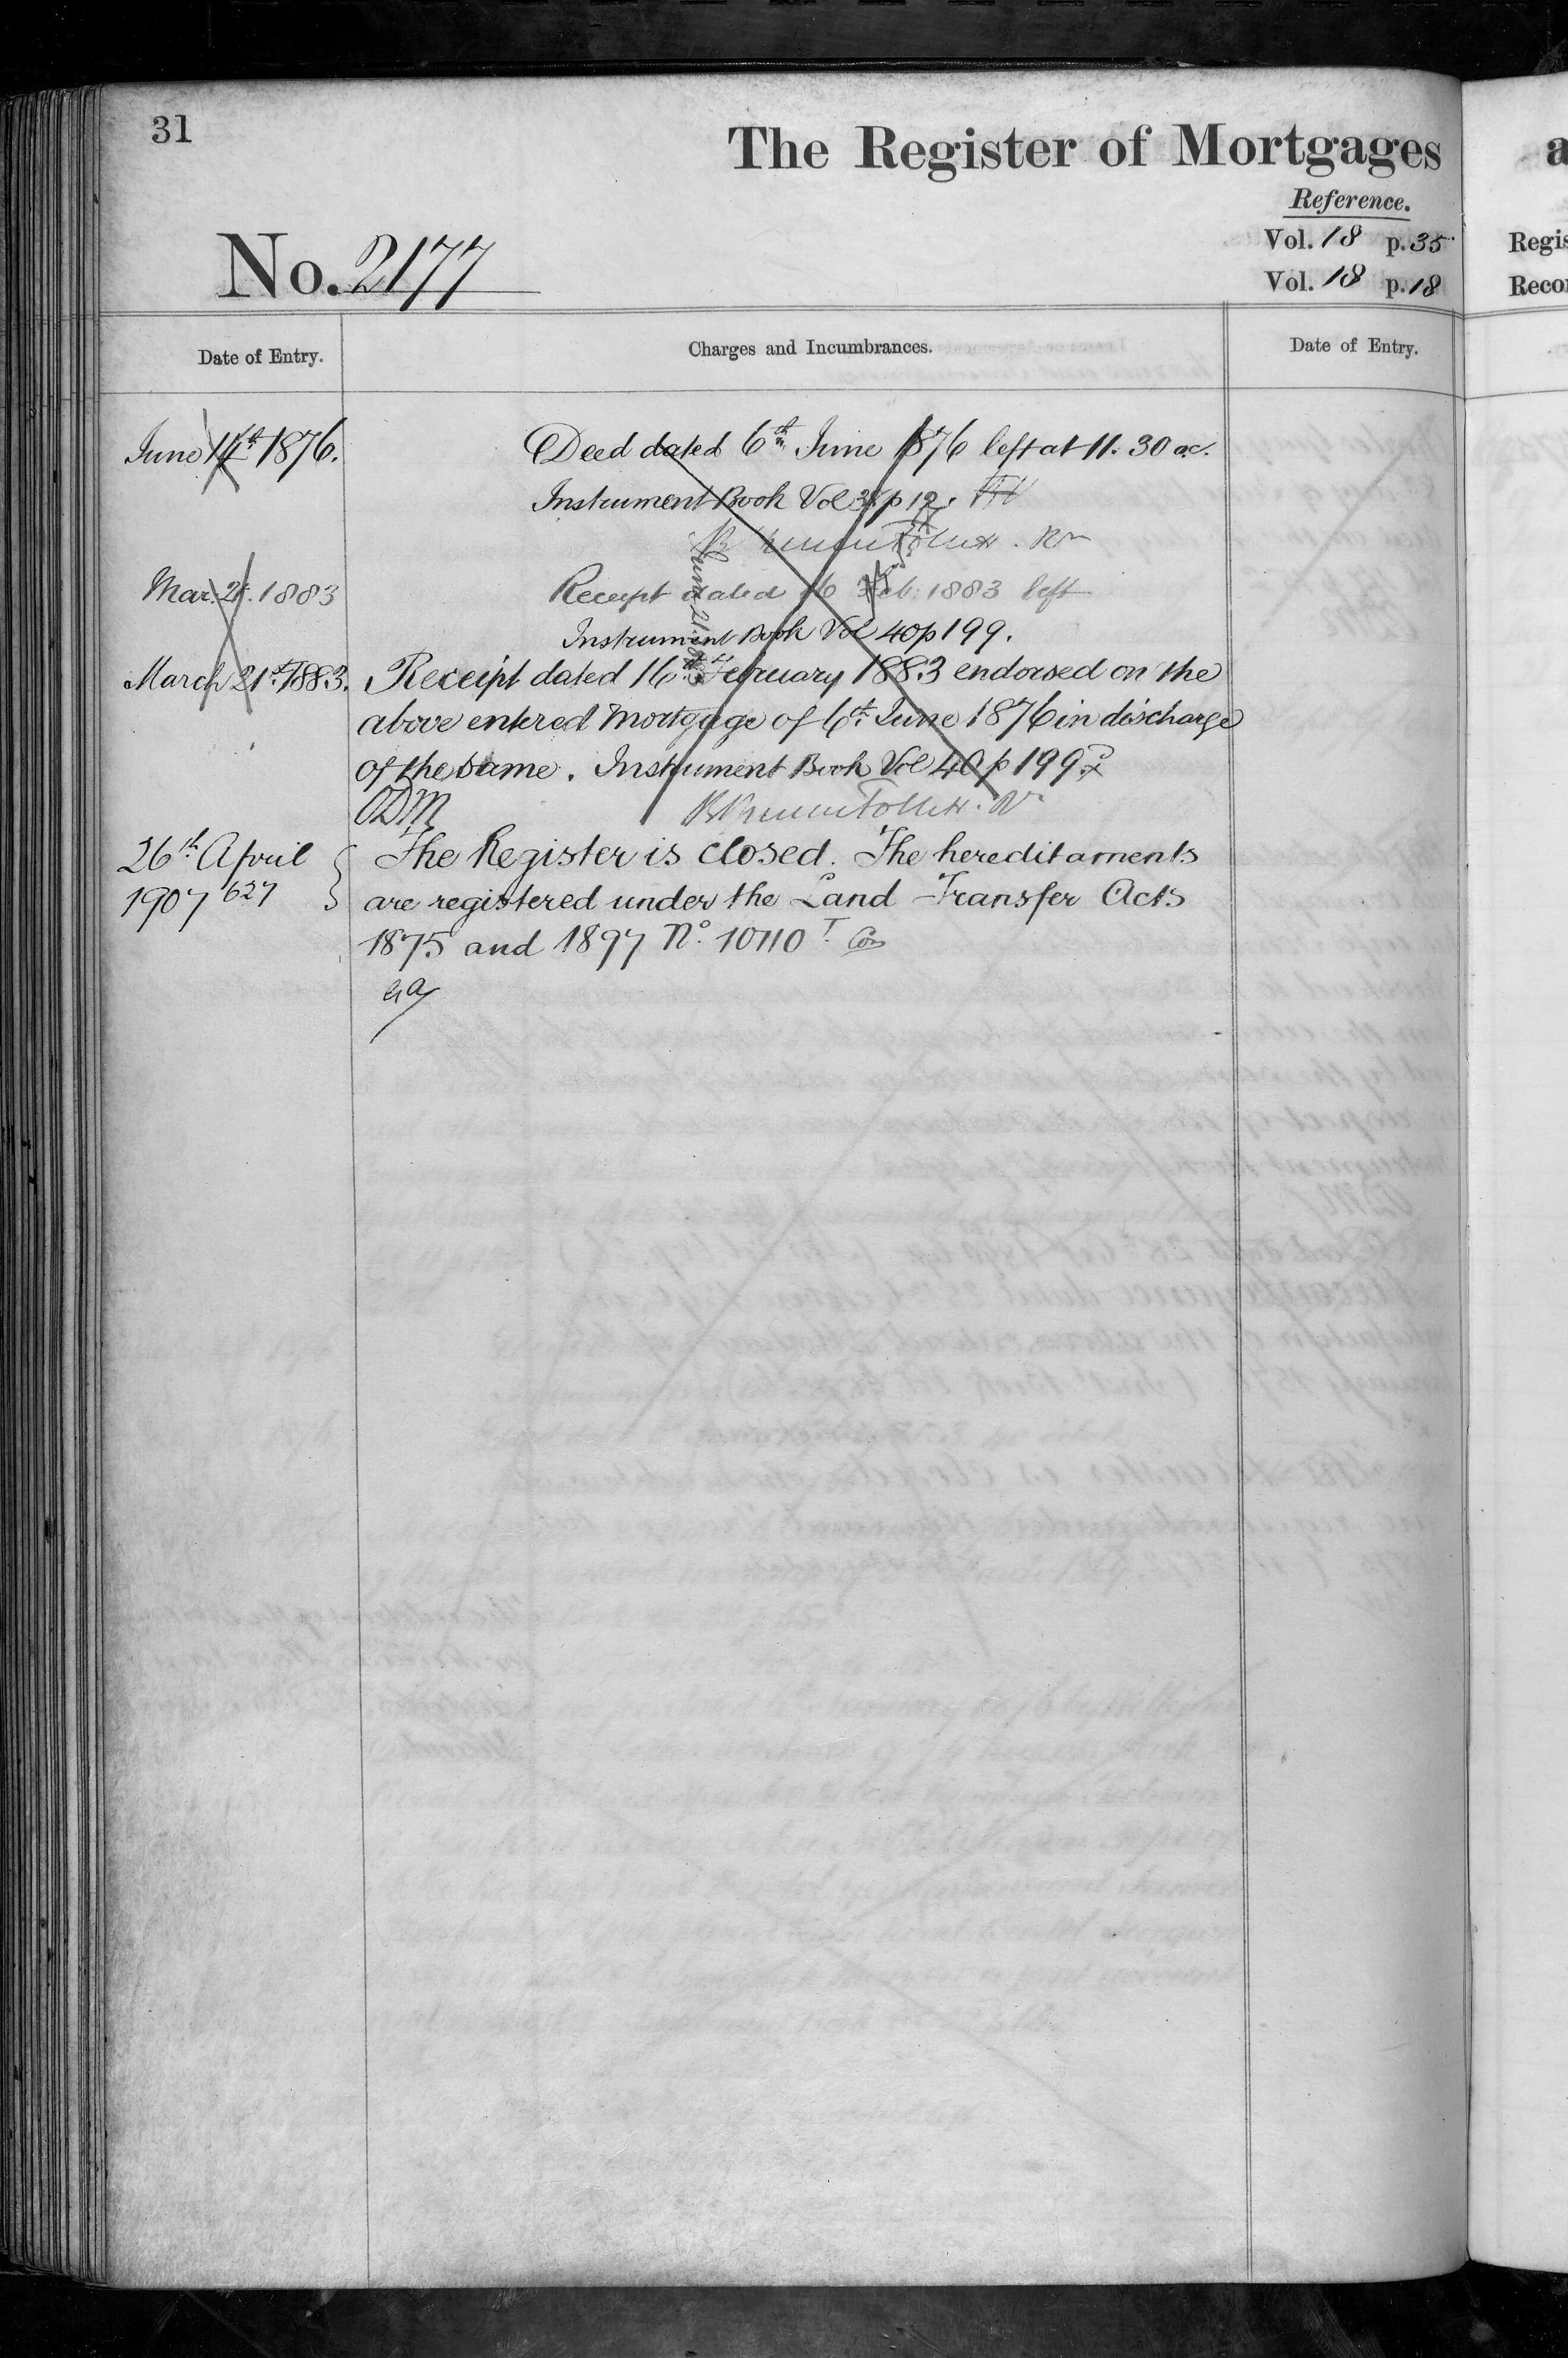 31
The Register of Mortgages
Reference.
No. 2177
Vol. 18 p. 35
Vol. 18 p. 18
Regis
Recor
Date of Entry.
Charges and Incumbrances.
Date of Entry.
June 14th 1876.
Deed dated 6th June 1876 left at 11.30 a.
Instrument Book Vol p 12.
Mar. 21. 1883
Receipt dated 16 Feb. 1883 left
Instrument Book Vol 40 p 199.
March 21st 1883.
Receipt dated 16th February 1883 endorsed on the
above entered Mortgage of 6th June 1876 in discharge
of the same. Instrument Book Vol 40 p 199.
ODM
26th April
1907 627
The Register is closed. The hereditaments
are registered under the Land Transfer Acts
1875 and 1897 No. 10110